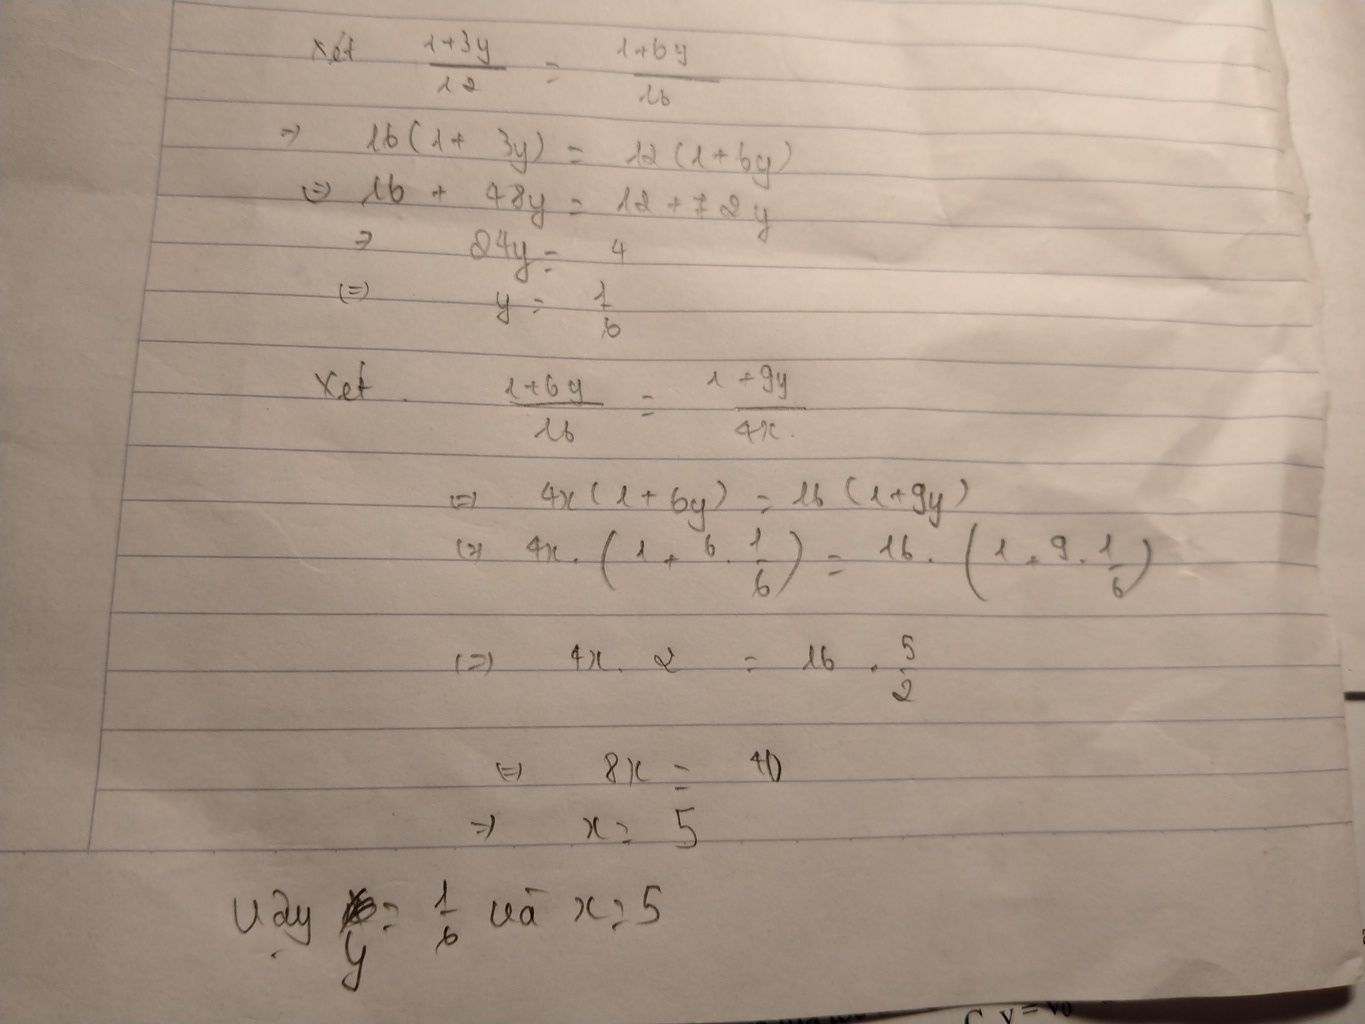 Xét (1+3y)/12 = (1+6y)/16
=> 16(1+ 3y) = 12(1+6y)
(=) 16 + 48y = 12+72y
=> 24y = 4
(=) y = 1/6
Xét (1+6y)/16 = (1+9y)/4x
(=) 4x(1+6y) = 16(1+9y)
(=) 4x.(1+6.1/6) = 16.(1+9.1/6)
(=) 4x.2 = 16.5/2
(=) 8x = 40
=> x = 5
Vậy y = 1/6 và x = 5
C. y = v₀